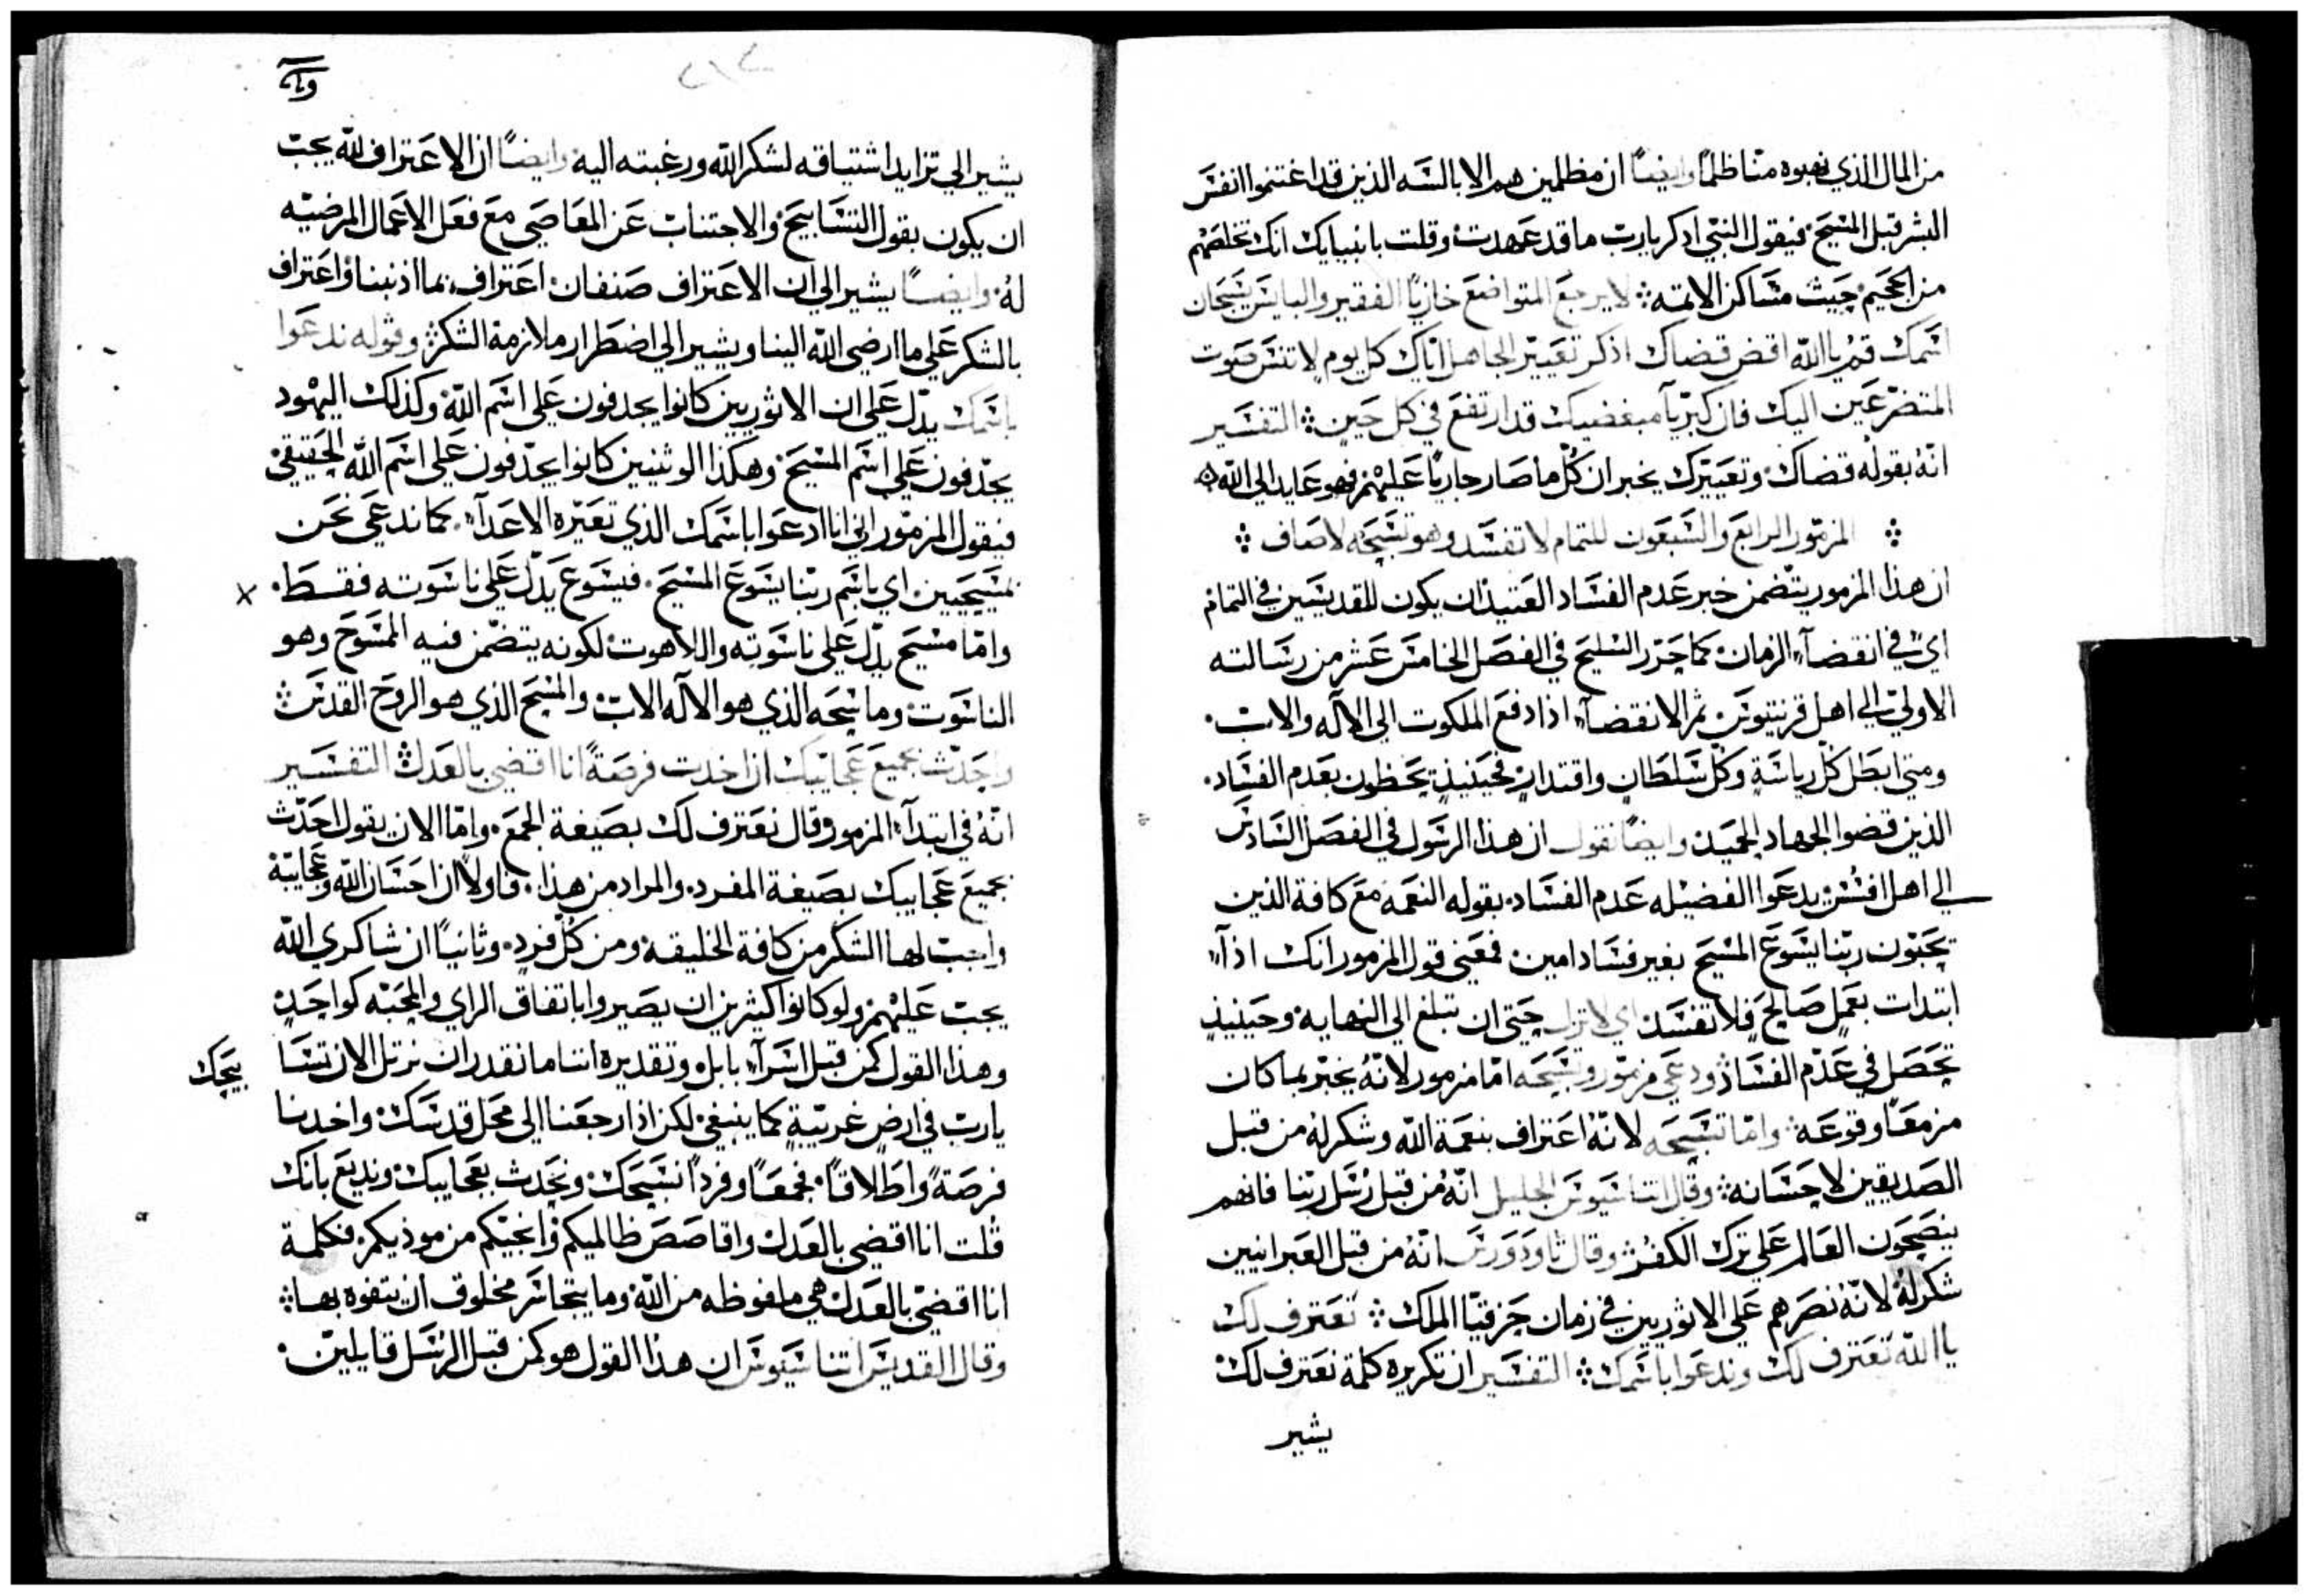 من المال الذي نهبوه منّا ظلمًا وايضًا ان مظلمين هم الابالسه الذين قد اغتنموا انفس
البشر قبل المسيح فيقول النبي اذكر يارب ما قد عهدت وقلت بانبيايك انك تخلصهم
من الجحيم حيث مساكن الاتمه لا يرجع المتواضع خازيًا الفقير والبايس يسبحان
اسمك قم يا الله اقض قضاك اذكر تعيير الجاهل اياك كل يوم لا تنس صوت
المتضرعين اليك فان كبريآ مبغضيك قد ارتفع في كل حين التفسير
انه بقوله قضاك وتعييرك يخبر ان كل ما صار جاريًا عليهم فهو عايد الي الله
المزمور الرابع والسبعون للتمام لا تفسد وهو تسبحه لاصاف
ان هذا المزمور يتضمن خبر عدم الفساد العتيد ان يكون للقديسين في التمام
اي في انقضآء الزمان كما حرّر السليح في الفصل الخامس عشر من رسالته
الاولي الي اهل قرنتيوس ثم الانقضآء اذا دفع الملكوت الي الاله والاب
ومتي ابطل كل رياسةٍ وكل سلطانٍ واقتدارٍ فحينيذٍ يحظون بعدم الفساد
الذين قضوا الجهاد الحميد وايضًا نقول ان هذا الرسول في الفصل السادس
الي اهل افسس يدعوا الفضيله عدم الفساد بقوله النعمه مع كافة الذين
يحبّون ربّنا يسوع المسيح بغير فساد امين فمعني قول المزمور انك اذآء
ابتدات بعملٍ صالحٍ فلا تفسد اي لا تزل حتي ان تبلغ الي النهايه وحينيذٍ
تحصل في عدم الفساد ودعي مزمور وتسبحه امّا مزمور لانه يخبّر بما كان
مزمعًا وقوعه وامّا تسبحه لانه اعتراف بنعمة الله وشكر له من قبل
الصديقين لاحسانه وقال اتناسيوس الجليل انّه من قبل رسل ربّنا فانهم
ينصحون العالم علي ترك الكفر وقال ثاودورس انّه من قبل العبرانيين
شكر له لانه نصرهم علي الاثوريين في زمان حزقيّا الملك نعترف لك
يا الله نعترف لك وندعوا باسمك التفسير ان تكريره كلمة نعترف لك
يشير
يشير الي تزايد اشتياقه لشكر الله ورغبته اليه وايضًا ان الاعتراف لله يجب
ان يكون بقول التسابيح والاجتناب عن المعاصي مع فعل الاعمال المرضيّه
له وايضًا يشير الي ان الاعتراف صنفان اعتراف بما اذنبنا واعتراف
بالشكر علي ما ارضي الله الينا ويشير الي اضطرار ملازمة الشكر وقوله ندعوا
باسمك يدّل علي ان الاثوريين كانوا يجدفون علي اسم الله وكذلك اليهود
يجدّفون علي اسم المسيح وهكذا الوثنيين كانوا يجدّفون علي اسم الله الحقيقي
فيقول المزمور اني انا ادعوا باسمك الذي تعيّره الاعدآء كما ندعي نحن
مسيحيين اي باسم ربّنا يسوع المسيح فيسوع يدّل علي ناسوته فقسط
وامّا مسيح يدّل علي ناسوته واللاهوت لكونه يتضمّن فيه الممسوح وهو
الناسوت وماسحه الذي هو الاله الاب والمسح الذي هو الروح القدس
واحدّث بجميع عجايبك ان اخدت فرصةً انا اقضي بالعدل التفسير
انّه في ابتدآء المزمور قال نعترف لك بصيغة الجمع وامّا الان يقول احدّث
بجميع عجايبك بصيغة المفرد والمراد من هذا فاولاً ان احسان الله وعجايبه
واجبٌ لها الشكر من كافة الخليقه ومن كل فردٍ وثانيًا ان شاكري الله
يجب عليهم ولو كانوا كثيرين ان يصيروا باتفاق الراي والمحبّه كواحدٍ
وهذا القول كمن قبل اسرآء بابل وتقديره اننا ما نقدر ان نرتل الان تسا
بيحك
يارب في ارضٍ غريبةٍ كما ينبغي لكن اذا رجعنا الي محل قدسك واخدنا
فرصةً واطلاقًا فجمعًا وفردًا نسبحك ونحدث بعجايبك ونديع بانك
قلت انا اقضي بالعدل واقاصص ظالميكم وانجيكم من موذيكم فكلمة
انا اقضي بالعدل هي ملفوظه من الله وما يتجاسر مخلوق ان يتفوه بها
وقال القديس اتناسيوس ان هذا القول هو كمن قبل الرسل قايلين